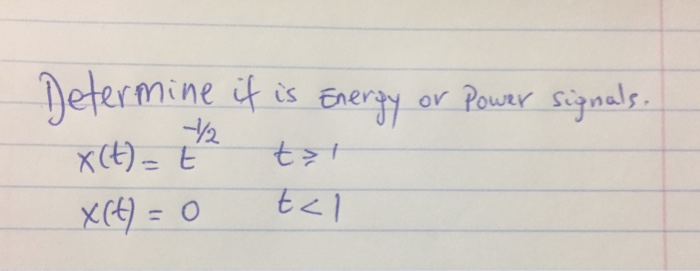 Determine if is Energy or Power signals.
x(t) = t^-1/2 t ≥ 1
x(t) = 0 t < 1